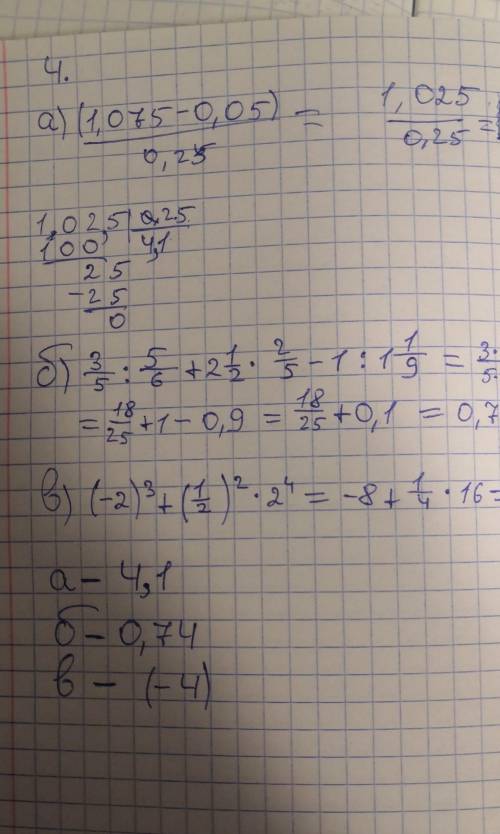 4.
а) (1,075 - 0,05) / 0,25 = 1,025 / 0,25 =
1,02,5 | 0,25
100 | 4,1
25
-25
0
б) 3/5 : 5/6 + 2 1/2 · 2/5 - 1 : 1 1/9 = 3· / 5·
= 18/25 + 1 - 0,9 = 18/25 + 0,1 = 0,7
в) (-2)³ + (1/2)² · 2⁴ = -8 + 1/4 · 16 =
а - 4,1
б - 0,74
в - (-4)